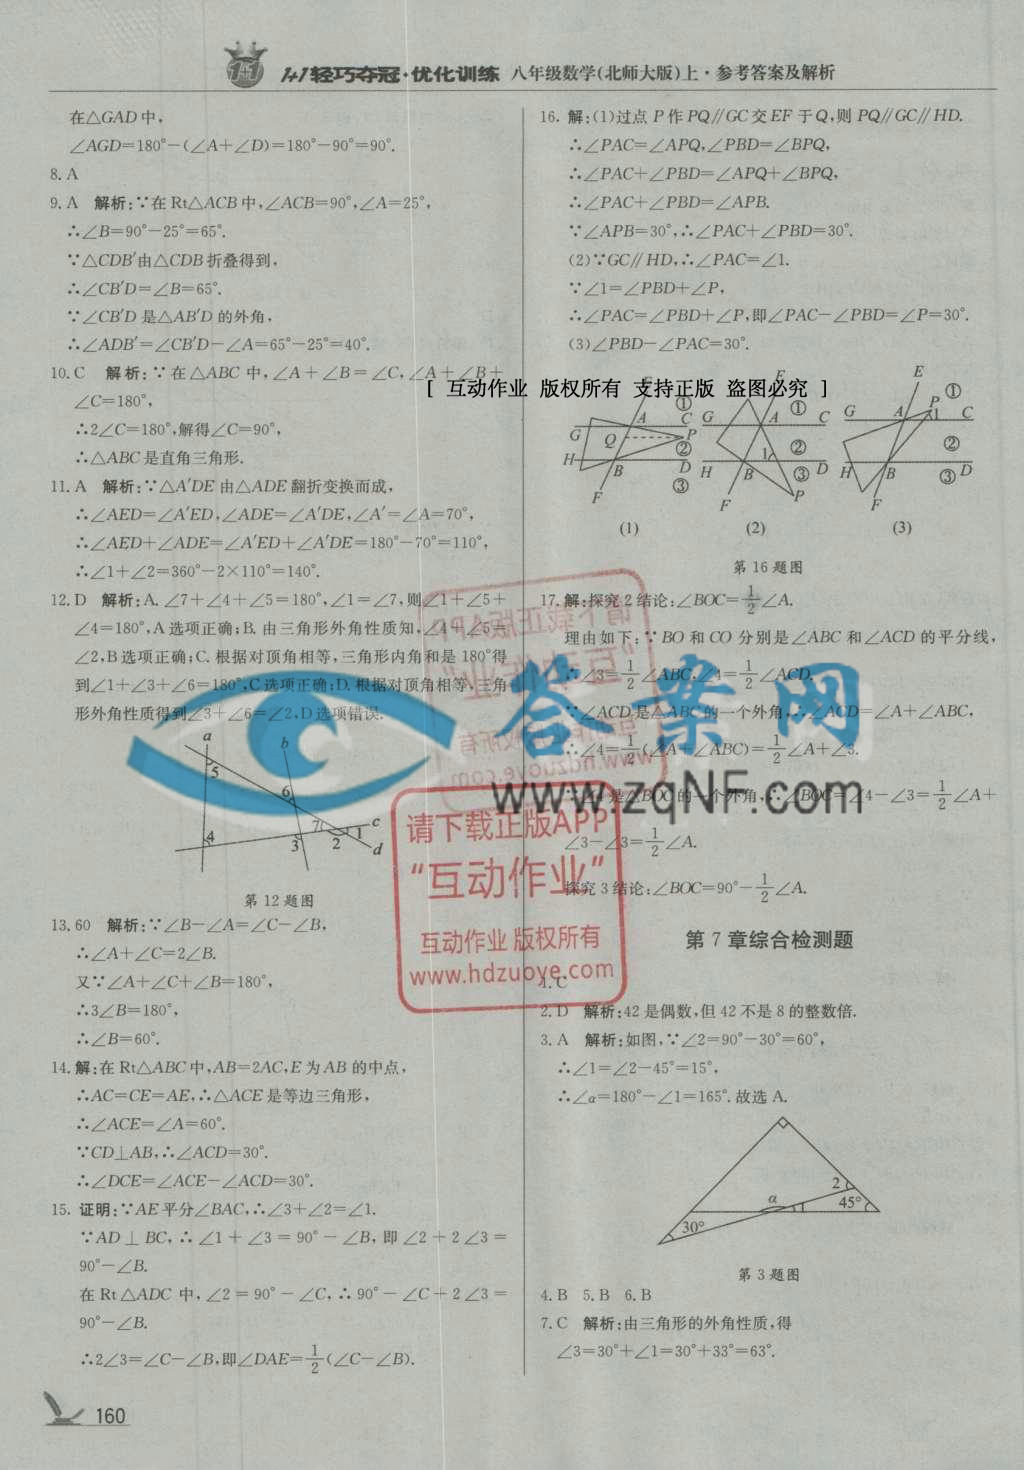 1+1轻巧夺冠·优化训练 八年级数学(北师大版)上·参考答案及解析
在△GAD中,
∠AGD=180°-(∠A+∠D)=180°-90°=90°.
8. A
9. A 解析:∵在Rt△ACB中,∠ACB=90°,∠A=25°,
∴∠B=90°-25°=65°.
∵△CDB′由△CDB折叠得到,
∴∠CB′D=∠B=65°.
∵∠CB′D是△AB′D的外角,
∴∠ADB′=∠CB′D-∠A=65°-25°=40°.
10. C 解析:∵在△ABC中,∠A+∠B=∠C,∠A+∠B+
∠C=180°,
∴2∠C=180°,解得∠C=90°,
∴△ABC是直角三角形.
11. A 解析:∵△A′DE由△ADE翻折变换而成,
∴∠AED=∠A′ED,∠ADE=∠A′DE,∠A′=∠A=70°,
∴∠AED+∠ADE=∠A′ED+∠A′DE=180°-70°=110°,
∴∠1+∠2=360°-2×110°=140°.
12. D 解析:A.∠7+∠4+∠5=180°,∠1=∠7,则∠1+∠5+
∠4=180°,A选项正确;B.由三角形外角性质知,∠4+∠5=
∠2,B选项正确;C.根据对顶角相等,三角形内角和是180°得
到∠1+∠3+∠6=180°,C选项正确;D.根据对顶角相等,三角
形外角性质得到∠3+∠6=∠2,D选项错误.
a
b
5
6
7
c
4
3
2
1
d
第12题图
13. 60 解析:∵∠B-∠A=∠C-∠B,
∴∠A+∠C=2∠B.
又∵∠A+∠C+∠B=180°,
∴3∠B=180°,
∴∠B=60°.
14. 解:在Rt△ABC中,AB=2AC,E为AB的中点,
∴AC=CE=AE,∴△ACE是等边三角形,
∴∠ACE=∠A=60°.
∵CD⊥AB,∴∠ACD=30°.
∴∠DCE=∠ACE-∠ACD=30°.
15. 证明:∵AE平分∠BAC,∴∠3+∠2=∠1.
∵AD⊥BC,∴∠1+∠3=90°-∠B,即∠2+2∠3=
90°-∠B.
在Rt△ADC中,∠2=90°-∠C,∴90°-∠C+2∠3=
90°-∠B.
∴2∠3=∠C-∠B,即∠DAE=1/2(∠C-∠B).
160
16. 解:(1)过点P作PQ∥GC交EF于Q,则PQ∥GC∥HD.
∴∠PAC=∠APQ,∠PBD=∠BPQ,
∴∠PAC+∠PBD=∠APQ+∠BPQ,
∴∠PAC+∠PBD=∠APB.
∵∠APB=30°,∴∠PAC+∠PBD=30°.
(2)∵GC∥HD,∴∠PAC=∠1.
∵∠1=∠PBD+∠P,
∴∠PAC=∠PBD+∠P,即∠PAC-∠PBD=∠P=30°.
(3)∠PBD-∠PAC=30°.
[ 互动作业 版权所有 支持正版 盗图必究 ]
E A ① C G Q P ② H B D ③ F
(1)
G A ① C ② 1 H B ③ D F P
(2)
E G A P ① C 1 ② H B ③ D F
(3)
第16题图
17. 解:探究2结论:∠BOC=1/2∠A.
理由如下:∵BO和CO分别是∠ABC和∠ACD的平分线,
∴∠3=1/2∠ABC,∠4=1/2∠ACD.
∵∠ACD是△ABC的一个外角,∴∠ACD=∠A+∠ABC,
∴∠4=1/2(∠A+∠ABC)=1/2∠A+∠3.
∵∠4是△BOC的一个外角,∴∠BOC=∠4-∠3=1/2∠A+
∠3-∠3=1/2∠A.
探究3结论:∠BOC=90°-1/2∠A.
第7章综合检测题
1. C
2. D 解析:42是偶数,但42不是8的整数倍.
3. A 解析:如图,∵∠2=90°-30°=60°,
∴∠1=∠2-45°=15°,
∴∠α=180°-∠1=165°.故选A.
2
α
1
45°
30°
第3题图
4. B 5. B 6. B
7. C 解析:由三角形的外角性质,得
∠3=30°+∠1=30°+33°=63°.
答案网
www.zqNF.com
请下载正版APP
“互动作业”
互动作业 版权所有
www.hdzuoye.com
请下载正版APP
“互动作业”
互动作业 版权所有
www.hdzuoye.com